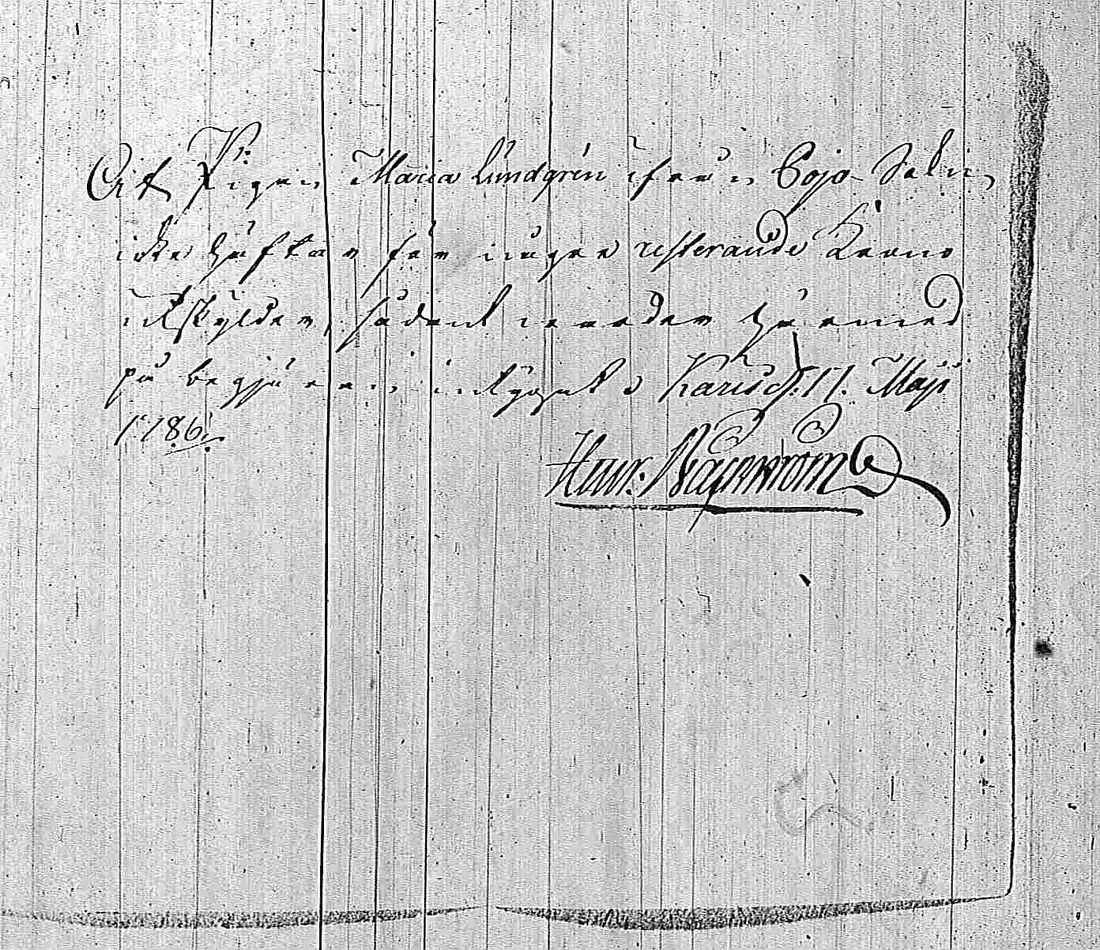 At Pigan Maria Lundgren ifrån Pojo Sokn
icke häftar för några resterande Krono
utskylder, sådant warder härmed
på begjäran intygat o Karis d. 17. Maji
1786.
Henr: